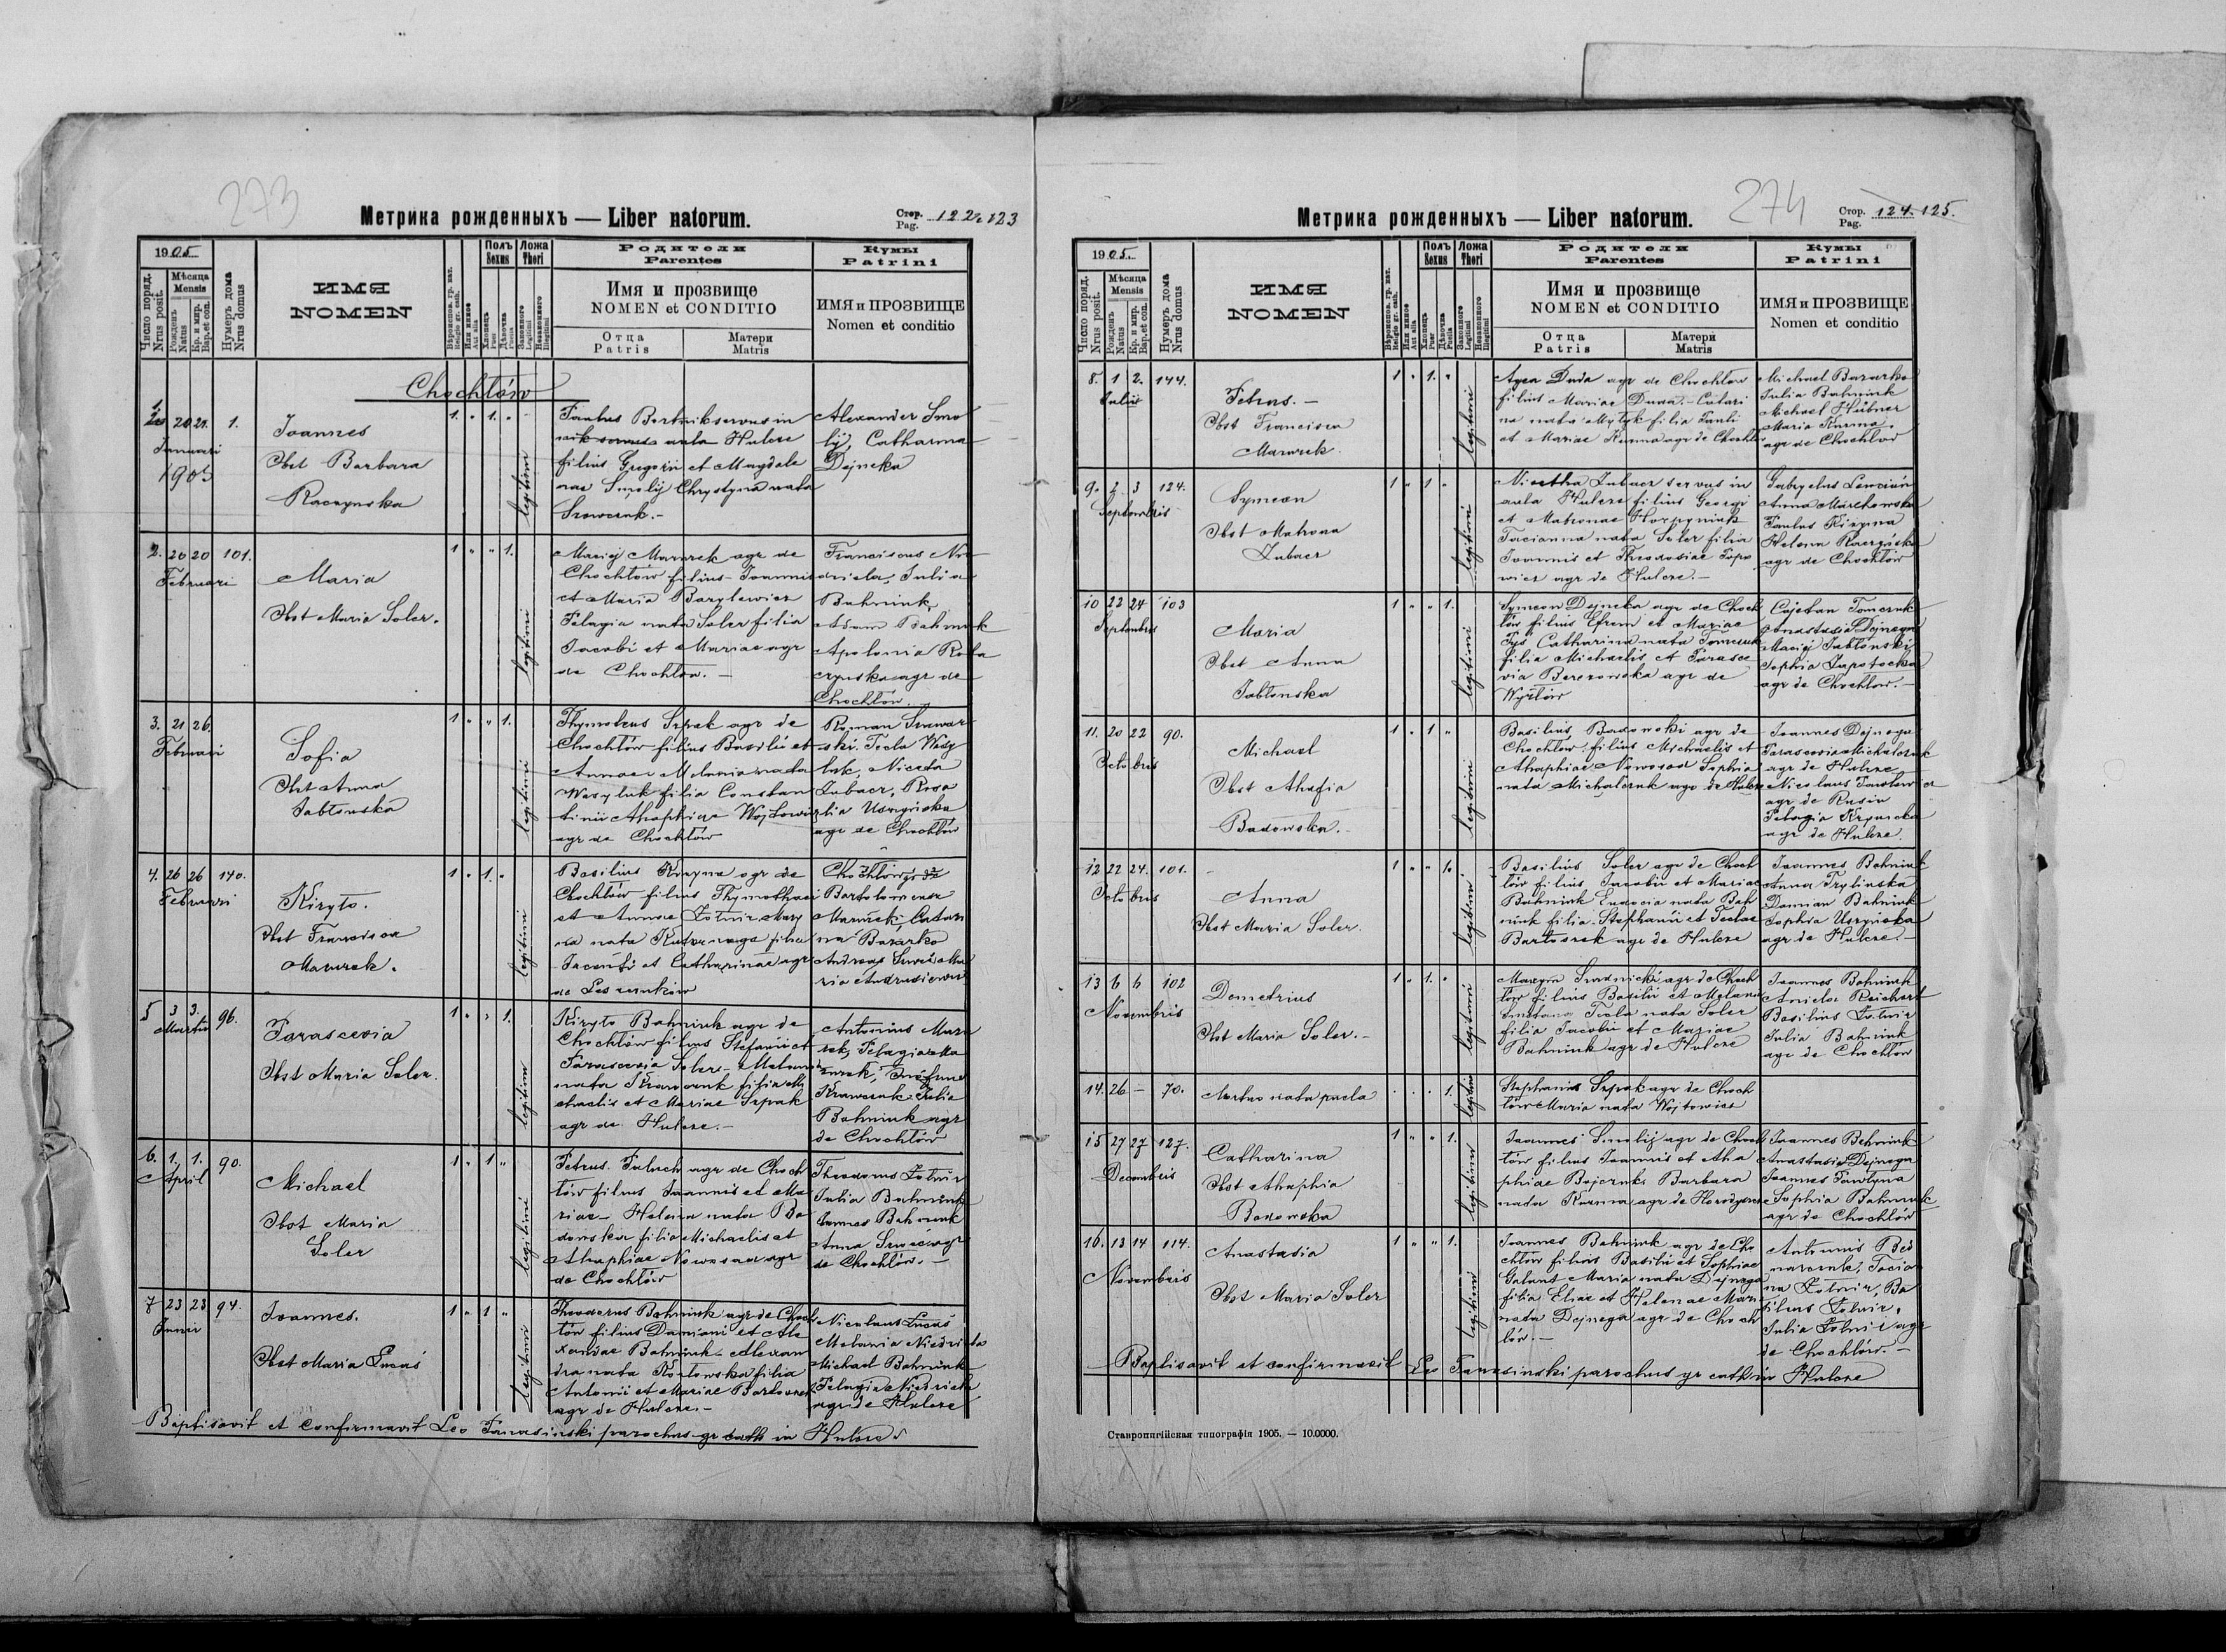 273
Метрика рожденныхъ — Liber natorum.
Стор. Pag. 122. 123
1905
Число поряд. Nrus posit.
Мѣсяца Mensis
Рожденъ Natus
Кр. и мир. Bap. et con.
Нумеръ дома Nrus domus
ИМЯ
NOMEN
Вѣроиспов. гр. кат. Religio gr. cath.
Или инное Aut alia
Полъ Sexus
Хлопець Puer
Дѣвочка Puella
Ложа Thori
Законного Legitimi
Незаконного Illegitimi
Родители
Parentes
Имя и прозвище
NOMEN et CONDITIO
Отца Patris
Матери Matris
Кумы
Patrini
ИМЯ и ПРОЗВИЩЕ
Nomen et conditio
Chochłów
1. 20 21. Januari 1905 1.
Joannes
Obst Barbara
Raczynska
1. " 1. "
legitimi
Paulus servus in
aula Hulcze
filius Gregorii et Magdale
nae Smolij Chrystyna nata
Szewczuk.-
Alexander Smo
lij, Catharina
Dejneka
2. 20 20 Februari 101.
Maria
Obst Maria Soler.
1 " " 1.
legitimi
Maciej Mazurek agr de
Chochłów filius Joannis
et Maria Barylewicz
Pelagia nata Soler filia
Jacobi et Mariae agr
de Chochłów.-
Franciscus
Julia
Bahniuk,
Adam Bahniuk
Apolonia Ra
czynska agr de
Chochłów.
3. 21 26. Februari
Sofia
Obst Anna
Jabłonska
1 " " 1.
legitimi
Thymoteus Szpak agr de
Chochłów filius Basilii et
Annae Melania nata
Wasyluk filia Constan
tinii Ahaphiae Wójtowicz
agr de Chochłów
Roman
Tecla Wasy
luk, Niceta
Zubacz, Rosa
lia
agr de Chochłów
4. 26 26 Februari 140.
Kiryło.
Obst Francisca
Mazurek.
1 " 1. "
legitimi
Basilius agr de
Chochłów filius Thymothaei
et Annae Zołnir Mary
na nata filia
et Catharinae agr
de
Bartolomeus
Mazurek, Catari
na Bazarko
Andreas Ma
ria
5 3 3. Martii 96.
Parascevia
Obst Maria Soler.
1 " " 1.
legitimi
Kiryło Bahniuk agr de
Chochłów filius Stefanii et
Parascevia Soler - Melania
nata Krawczuk filia Mi
chaelis et Mariae Szpak
agr de Hulcze.-
Antonius Mazu
rek, Pelagia Ma
zurek,
Krawczuk Julia
Bahniuk agr
de Chochłów
6. 1. 1. April 90.
Michael
Obst Maria
Soler
1 " 1 "
legitimi
Petrus Paluch agr de Choch
łów filius Joannis et Ma
riae - Helena nata Ba
dowska filia Michaelis et
Ahaphiae Nowosad agr
de Chochłów
Theodorus Zołnir
Julia Bahniuk
Joannes Bahniuk
Anna agr
de Chochłów.-
7 23 23 Junii 94.
Joannes.
Obst Maria Łucaś
1 " 1 "
legitimi
Theodorus Bahniuk agr de Choch
łów filius Damiani et Ale
xandrae Bahniuk - Alexan
dra nata Kozłowska filia
Antonii et Mariae Bartoszek
agr de Hulcze.-
Nicolaus Łucaś
Melania
Michael Bahniuk
Pelagia
agr de Hulcze
Baptisavit et confirmavit Leo Tanasinski parochus gr cath in Hulcze
274
Метрика рожденныхъ — Liber natorum.
Стор. Pag. 124. 125.
1905.
Число поряд. Nrus posit.
Мѣсяца Mensis
Рожденъ Natus
Кр. и мир. Bap. et con.
Нумеръ дома Nrus domus
ИМЯ
NOMEN
Вѣроиспов. гр. кат. Religio gr. cath.
Или инное Aut alia
Полъ Sexus
Хлопець Puer
Дѣвочка Puella
Ложа Thori
Законного Legitimi
Незаконного Illegitimi
Родители
Parentes
Имя и прозвище
NOMEN et CONDITIO
Отца Patris
Матери Matris
Кумы
Patrini
ИМЯ и ПРОЗВИЩЕ
Nomen et conditio
8. 1 2. Julii 144.
Petrus.-
Obst Francisca
Mazurek.
1 " 1. "
legitimi
Duda agr de Chochłów
filius Mariae Duda.- Catari
na nata Mytyk filia Pauli
et Mariae Kuzma agr de Chochłów
Michael Bazarko
Julia Bahniuk
Michael Hübner
Maria Kuzma.
agr de Chochłów
9. 2 3 Septembris 124.
Symeon
Obst Matrona
Zubacz
1 " 1 "
legitimi
Nicetha Zubacz servus in
aula Hulcze filius Georgi
et Matronae
Tacianna nata Soler filia
Joannis et Theodosiae Popo
wicz agr de Hulcze.-
Gabryelus
Anna
Paulus
Helena Raczyńska
agr de Chochłów
10 22 24 Septembris 103
Maria
Obst Anna
Jabłonska
1 " " 1.
legitimi
Symeon Dejneka agr de Choch
łów filius Efrem et Mariae
Catharina nata Tomczuk
filia Michaelis et Parasce
via Berezowska agr de
Wyżłów
Cajetan Tomczuk
Anastasia Dejnega
Maciej Jabłonski
Sophia Zapotocka
agr de Chochłów.-
11. 20 22 Octobris 90.
Michael
Obst Ahafia
Badowska.-
1 " 1 "
legitimi
Basilius Badowski agr de
Chochłow filius Michaelis et
Ahaphiae Nowosad Sophia
nata Michalczuk agr de Hulcze
Joannes Dejnega
Parascevia Michalczuk
agr de Hulcze
Nicolaus
agr de Rusin
Pelagia
agr de Hulcze.
12 22 24. Octobris 101.
Anna
Obst Maria Soler.
1 " " 1.
legitimi
Basilius Soler agr de Choch
łów filius Jacobii et Mariae
Bahniuk Eudocia nata Bah
niuk filia Stephanii et Teclae
Bartoszek agr de Hulcze
Joannes Bahniuk
Anna Trylinska
Damian Bahniuk
Sophia
agr de Hulcze.-
13 6 6 Novembris 102
Demetrius
Obst Maria Soler.-
1 " 1. "
legitimi
Maxym agr de Choch
łów filius Basilii et Melania
Smetana Tecla nata Soler
filia Jacobii et Mariae
Bahniuk agr de Hulcze
Joannes Bahniuk
Aniela Reichert
Basilius Zołnir
Julia Bahniuk
agr de Chochłów
14. 26 — 70.
Mortuo nata puela
. . . 1.
legitimi
Stephanus Szpak agr de Choch
łów Maria nata Wojtowicz
15 27 27 Decembris 127.
Catharina
Obst Ahaphia
Badowska
1 " " 1.
legitimi
Joannes Smolij agr de Choch
łów filius Joannis et Aha
phiae Bojczuk Barbara
nata Kuzma agr de
Joannes Bahniuk
Anastasia Dejnega
Joannes Pawlyna
Sophia Bahniuk
agr de Chochłów
16. 13 14 Novembris 114.
Anastasia
Obst Maria Soler
1 " " 1.
legitimi
Joannes Bahniuk agr de Cho
chłów filius Basilii et Sophiae
Galant Maria nata Dejnega
filia Eliae et Helenae Maria
nata Dejnega agr de Choch
łów.-
Antonius Bed
narczuk, Tacia
na Zołnir, Ba
silius Zołnir,
Julia Zołnir agr
de Chochłów.-
Baptisavit et confirmavit Leo Tanasinski parochus gr cath in Hulcze
Ставропигійская типографія 1905. — 10.0000.